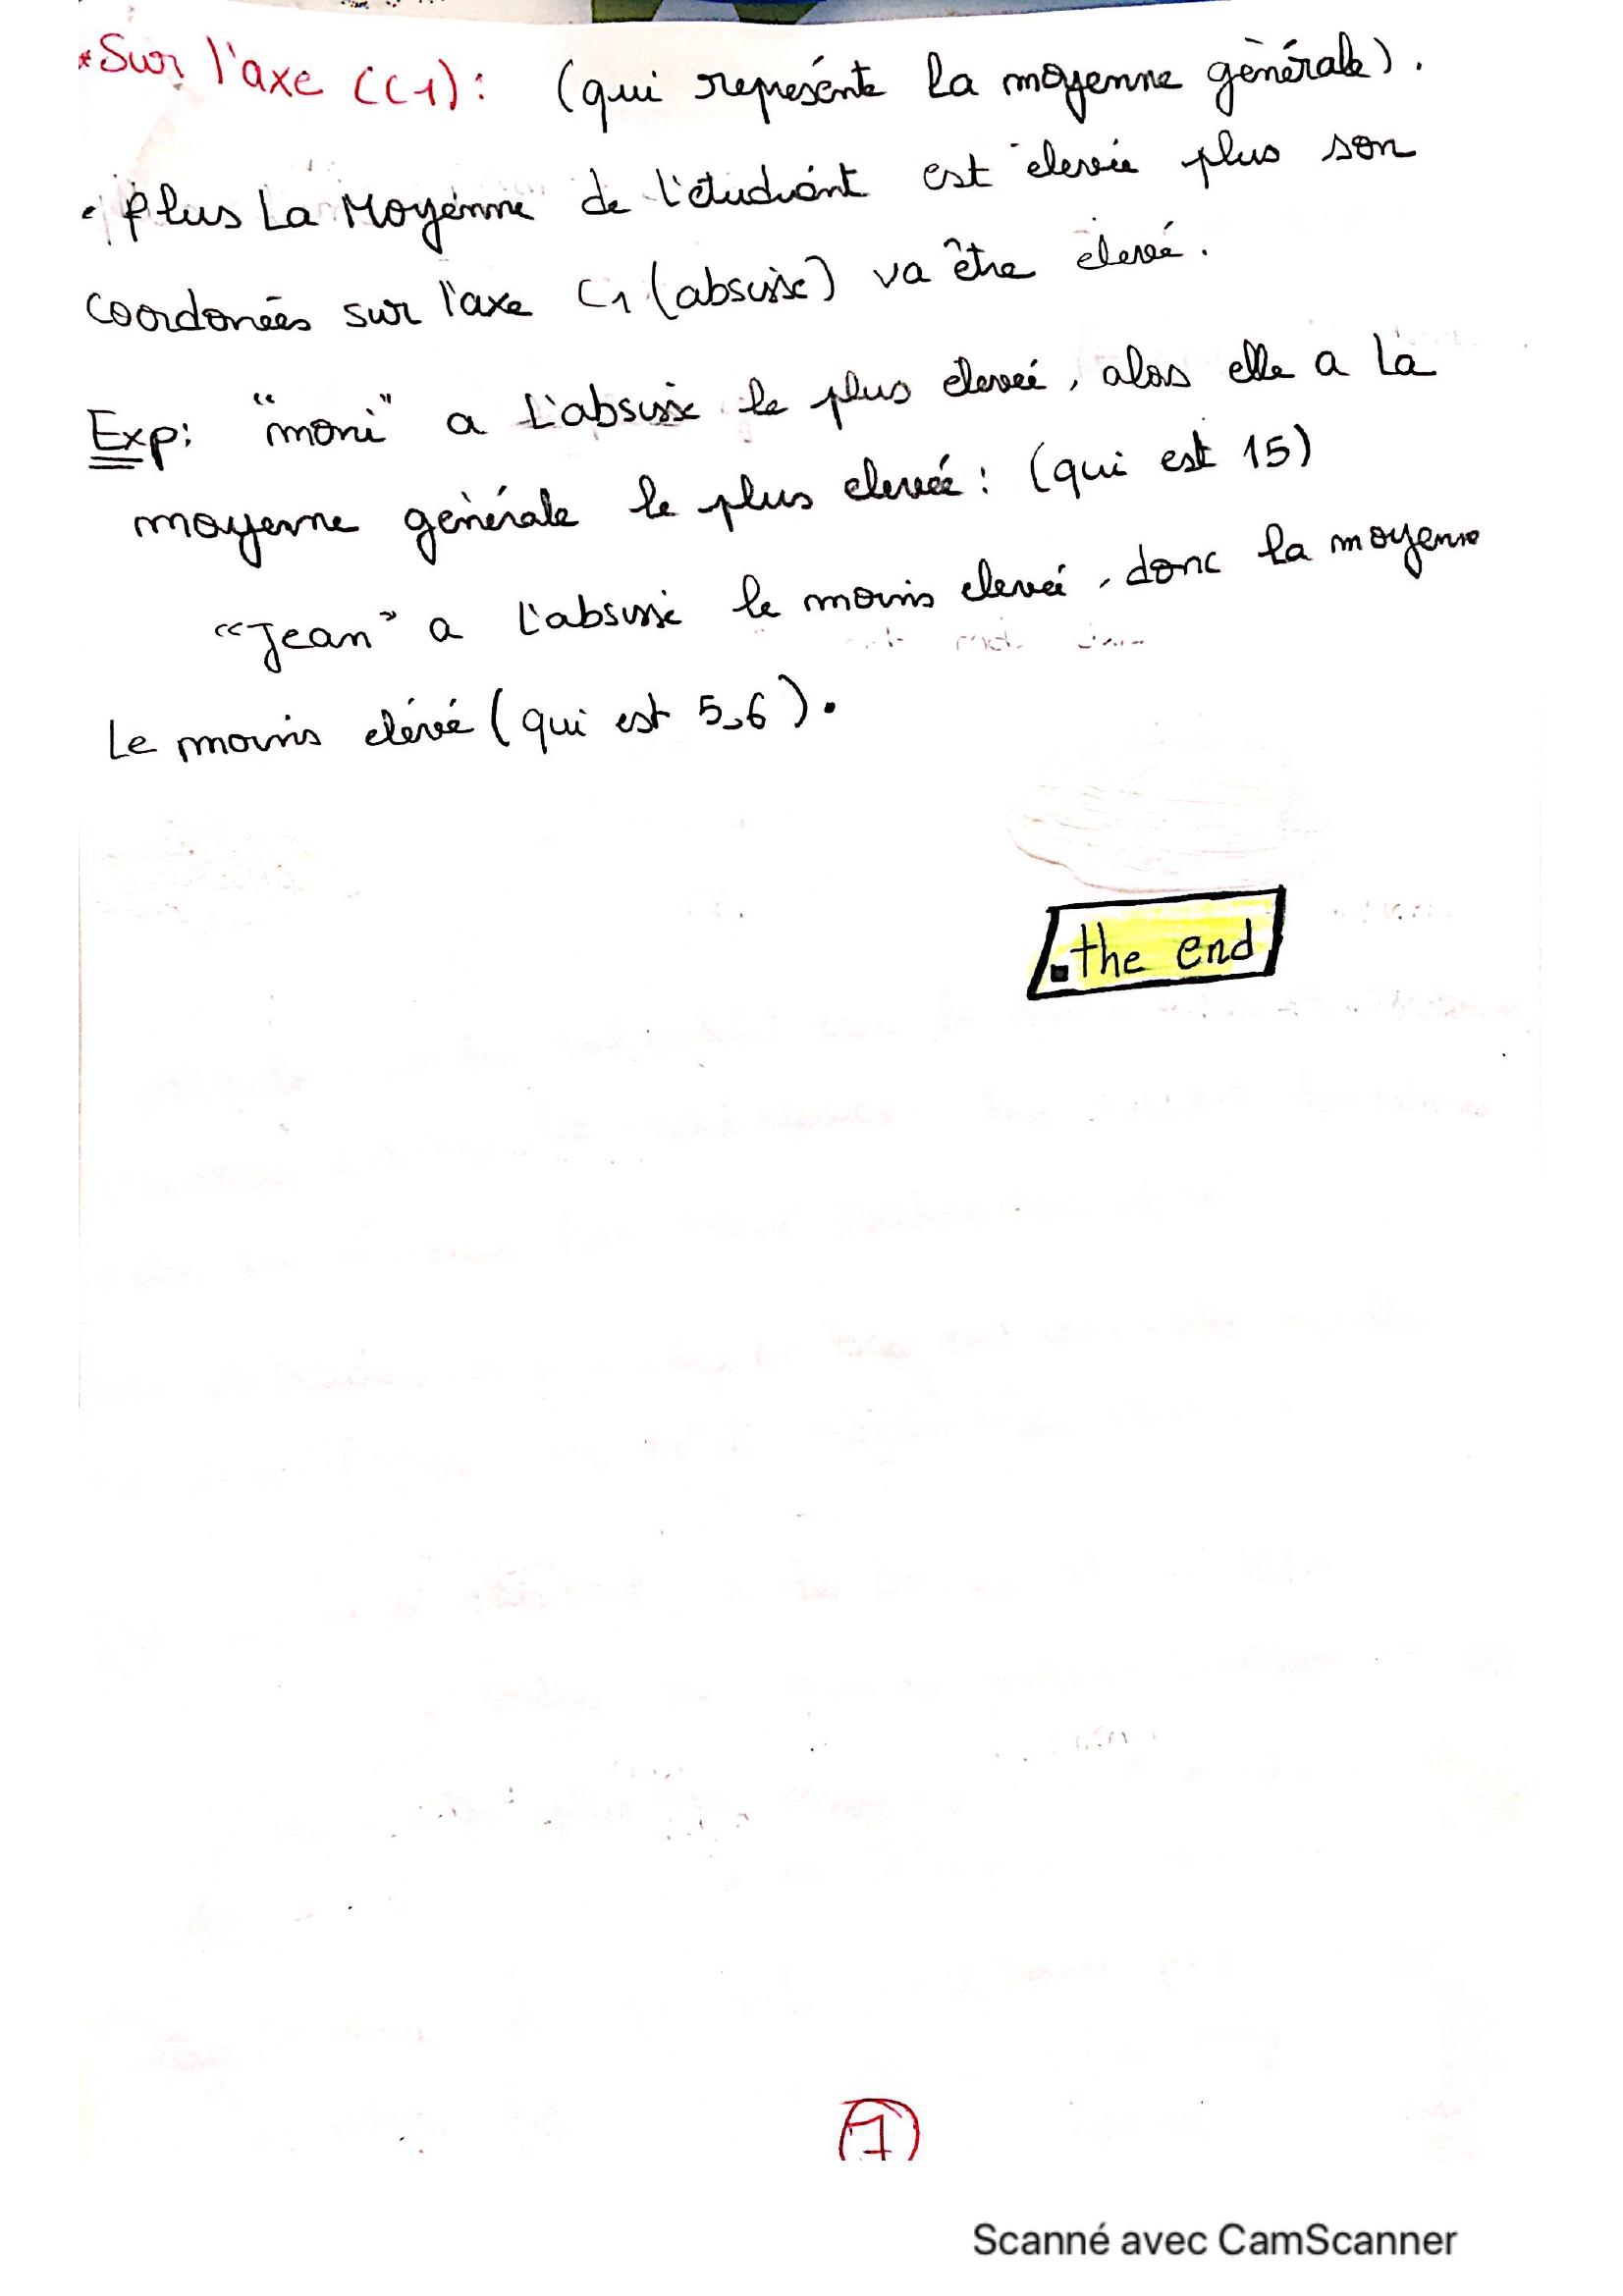 *Sur l'axe (C1): (qui représente la moyenne générale).
• Plus La Moyenne de l'étudiant est elevée plus son
coordonées sur l'axe C1 (absisse) va être elevé.
Exp: "moni" a L'absisse le plus elevée, alos elle a La
moyenne générale le plus elevée: (qui est 15)
"Jean" a L'absisse le moins elevée, donc la moyenne
Le moins elévé (qui est 5,6).
.the end
1
Scanné avec CamScanner